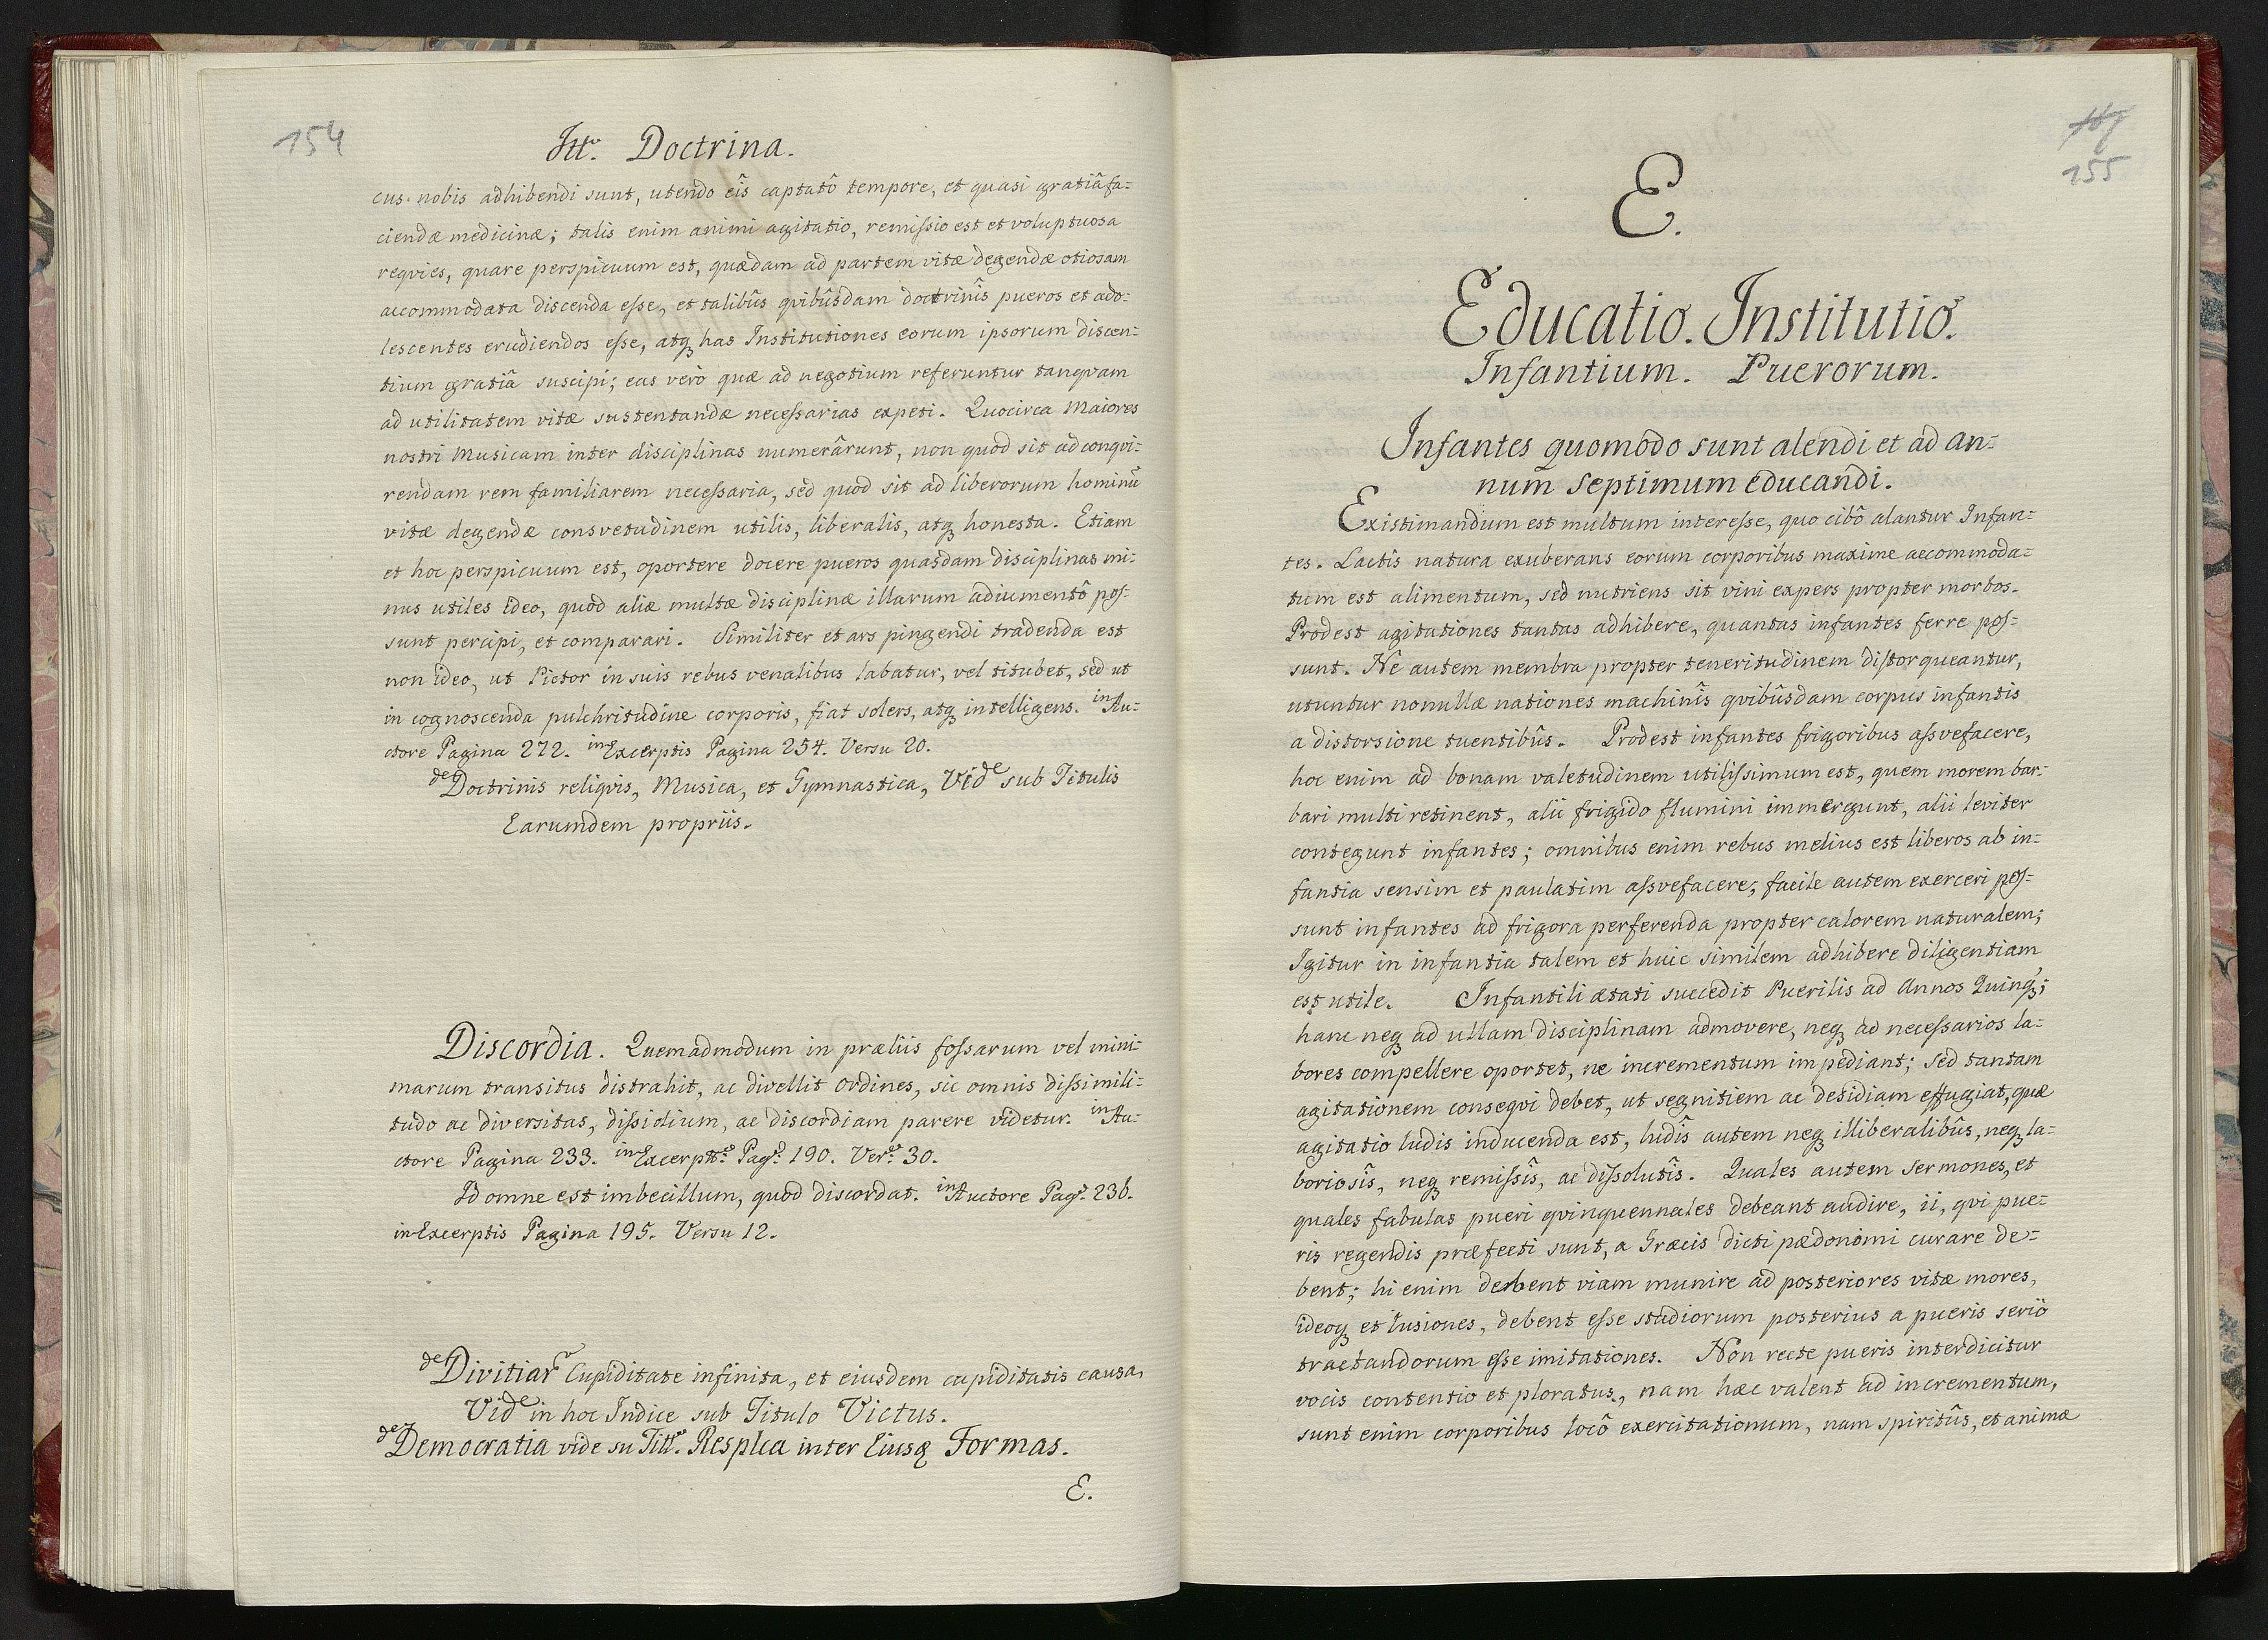 154
Ttt. Doctrina.
cus nobis adhibendi sunt, utendo eîs captatô tempore, et quasi gratiâ fa=
ciendæ medicinæ; talis enim animi agitatio, remiſsio est et voluptuosa
reqvies, quare perspicuum est, quædam ad partem vitæ degendæ otiosam
accommodata discenda eſse, et talibûs qvibûsdam doctrinîs pueros et ado=
lescentes erudiendos eſse, atq̨ has Institutiones eorum ipsorum discen=
tium gratiâ suscipi; eas verò quæ ad negotium referuntur tanqvam
ad utilitatem vitæ sustentandæ neceſsarias expeti. Quocirca Maiores
nostri Musicam inter disciplinas numerârunt, non quod sit ad conqvi=
rendam rem familiarem neceſsaria, sed quod sit ad liberorum hominū
vitæ degendæ consvetudinem utilis, liberalis, atq̨ honesta. Etiam
et hoc perspicuum est, oportere docere pueros quasdam disciplinas mi=
nus utiles ideo, quod aliæ multæ disciplinæ illarum adiumentô poſ=
sunt percipi, et comparari. Similiter et ars pingendi tradenda est
non ideo, ut Pictor in suis rebus venalibus labatur, vel titubet, sed ut
in cognoscenda pulchritudine corporis, fiat solers, atq̨ intelligens. in Au=
ctore Pagina 272. in Excerptis Pagina 254. Versu 20.
de Doctrinis reliqvis, Musica, et Gymnastica, Vide sub Titulis
Earumdem propriis.
Discordia. Quemadmodum in præliis foſsarum vel mini=
marum transitus distrahit, ac divellit ordines, sic omnis diſsimili=
tudo ac diversitas, diſsidium, ac discordiam parere videtur. in Au=
ctore Pagina 233. in Excerptis Pag. 190. Ver. 30.
Id omne est imbecillum, quod discordat. in Auctore Pag. 236.
in Excerptis Pagina 195. Versu 12.
de Divitiar Cupiditate infinita, et eiusdem cupiditatis causa,
Vide in hoc Indice sub Titulo Victus.
de Democratia vide su Titt. Resplca inter Eiusq̨ Formas.
E.
155
E.
Educatio. Institutio.
Infantium. Puerorum.
Infantes quomodo sunt alendi et ad an=
num septimum educandi.
Existimandum est multum intereſse, quo cibô alantur Infan=
tes. Lactis natura exuberans eorum corporibus maxime accommoda=
tum est alimentum, sed nutriens sit vini expers propter morbos.
Prodest agitationes tantas adhibere, quantas infantes ferre poſ=
sunt. Ne autem membra propter teneritudinem diſtorqueantur,
utuntur nonullæ nationes machinîs qvibûsdam corpus infantis
a distorsione tuentibûs. Prodest infantes frigoribus aſsvefacere,
hoc enim ad bonam valetudinem utiliſsimum est, quem morem bar=
bari multi retinent, alii frigido flumini immergunt, alii leviter
contegunt infantes; omnibus enim rebus melius est liberos ab in=
fantia sensim et paulatim aſsvefacere; facile autem exerceri poſ=
sunt infantes ad frigora perferenda propter calorem naturalem;
Igitur in infantia talem et huic similem adhibere diligentiam
est utile. Infantili ætati succedit Puerilis ad Annos Quinq̨;
hanc neq̨ ad ullam disciplinam admovere, neq̨ ad neceſsarios la=
bores compellere oportet, ne incrementum impediant; sed tantam
agitationem conseqvi debet, ut segnitiem ac desidiam effugiat, quæ
agitatio ludis inducenda est, ludîs autem neq̨ illiberalibûs, neq̨ la=
boriosîs, neq̨ remiſsîs, ac diſsolutîs. Quales autem sermones, et
quales fabulas pueri qvinquennales debeant audire, ii, qvi pue=
ris regendis præfecti sunt, a Græcis dicti pædonomi curare de=
bent; hi enim debent viam munire ad posteriores vitæ mores,
ideoq̨ et lusiones, debent eſse studiorum posterius a pueris seriò
tractandorum eſse imitationes. Non recte pueris interdicitur
vocis contentio et ploratus, nam hæc valent ad incrementum,
sunt enim corporibus locô exercitationum, nam spiritûs, et animæ